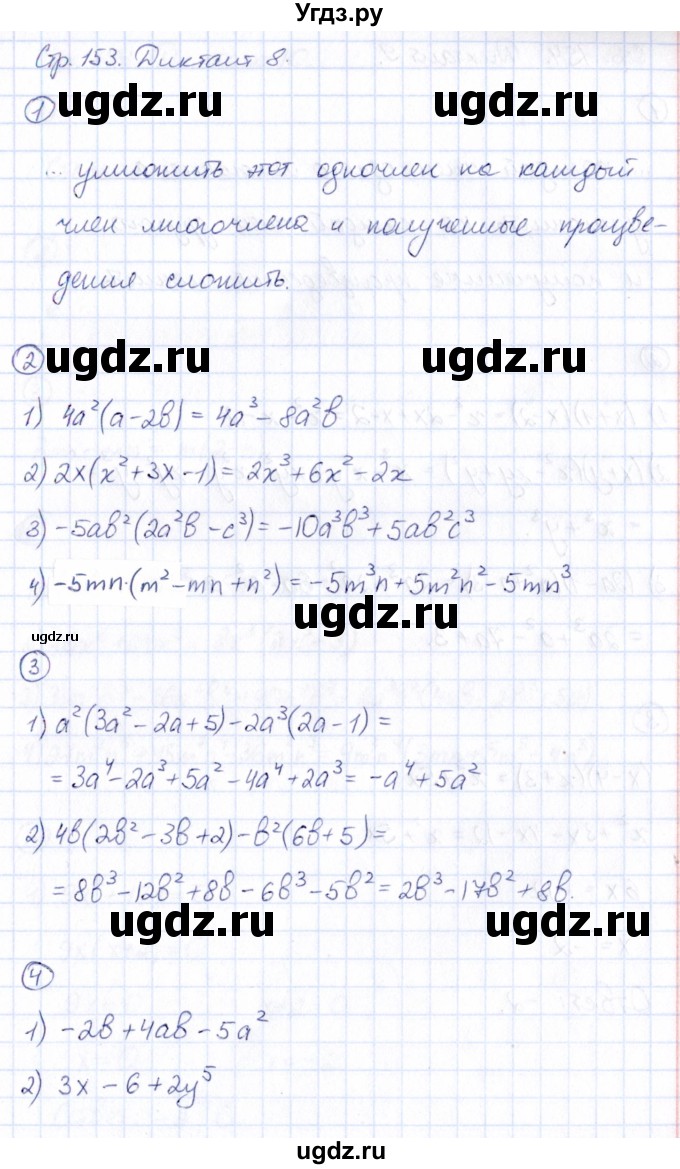 Угдз.ру
Стр. 153. Диктант 8.
① ugdz.ru ugdz.ru
... умножить этот одночлен на каждый
член многочлена и полученные произве-
дения сложить.
② ugdz.ru ugdz.ru
1) 4a²(a-2b) = 4a³ - 8a²b
2) 2x(x² + 3x - 1) = 2x³ + 6x² - 2x
3) -5ab²(2a²b - c³) = -10a³b³ + 5ab²c³
4) -5mn·(m² - mn + n²) = -5m³n + 5m²n² - 5mn³
ugdz.ru ugdz.ru
③
1) a²(3a² - 2a + 5) - 2a³(2a - 1) =
= 3a⁴ - 2a³ + 5a² - 4a⁴ + 2a³ = -a⁴ + 5a²
2) 4b(2b² - 3b + 2) - b²(6b + 5) =
= 8b³ - 12b² + 8b - 6b³ - 5b² = 2b³ - 17b² + 8b.
ugdz.ru ugdz.ru
④
1) -2b + 4ab - 5a²
2) 3x - 6 + 2y⁵
ugdz.ru